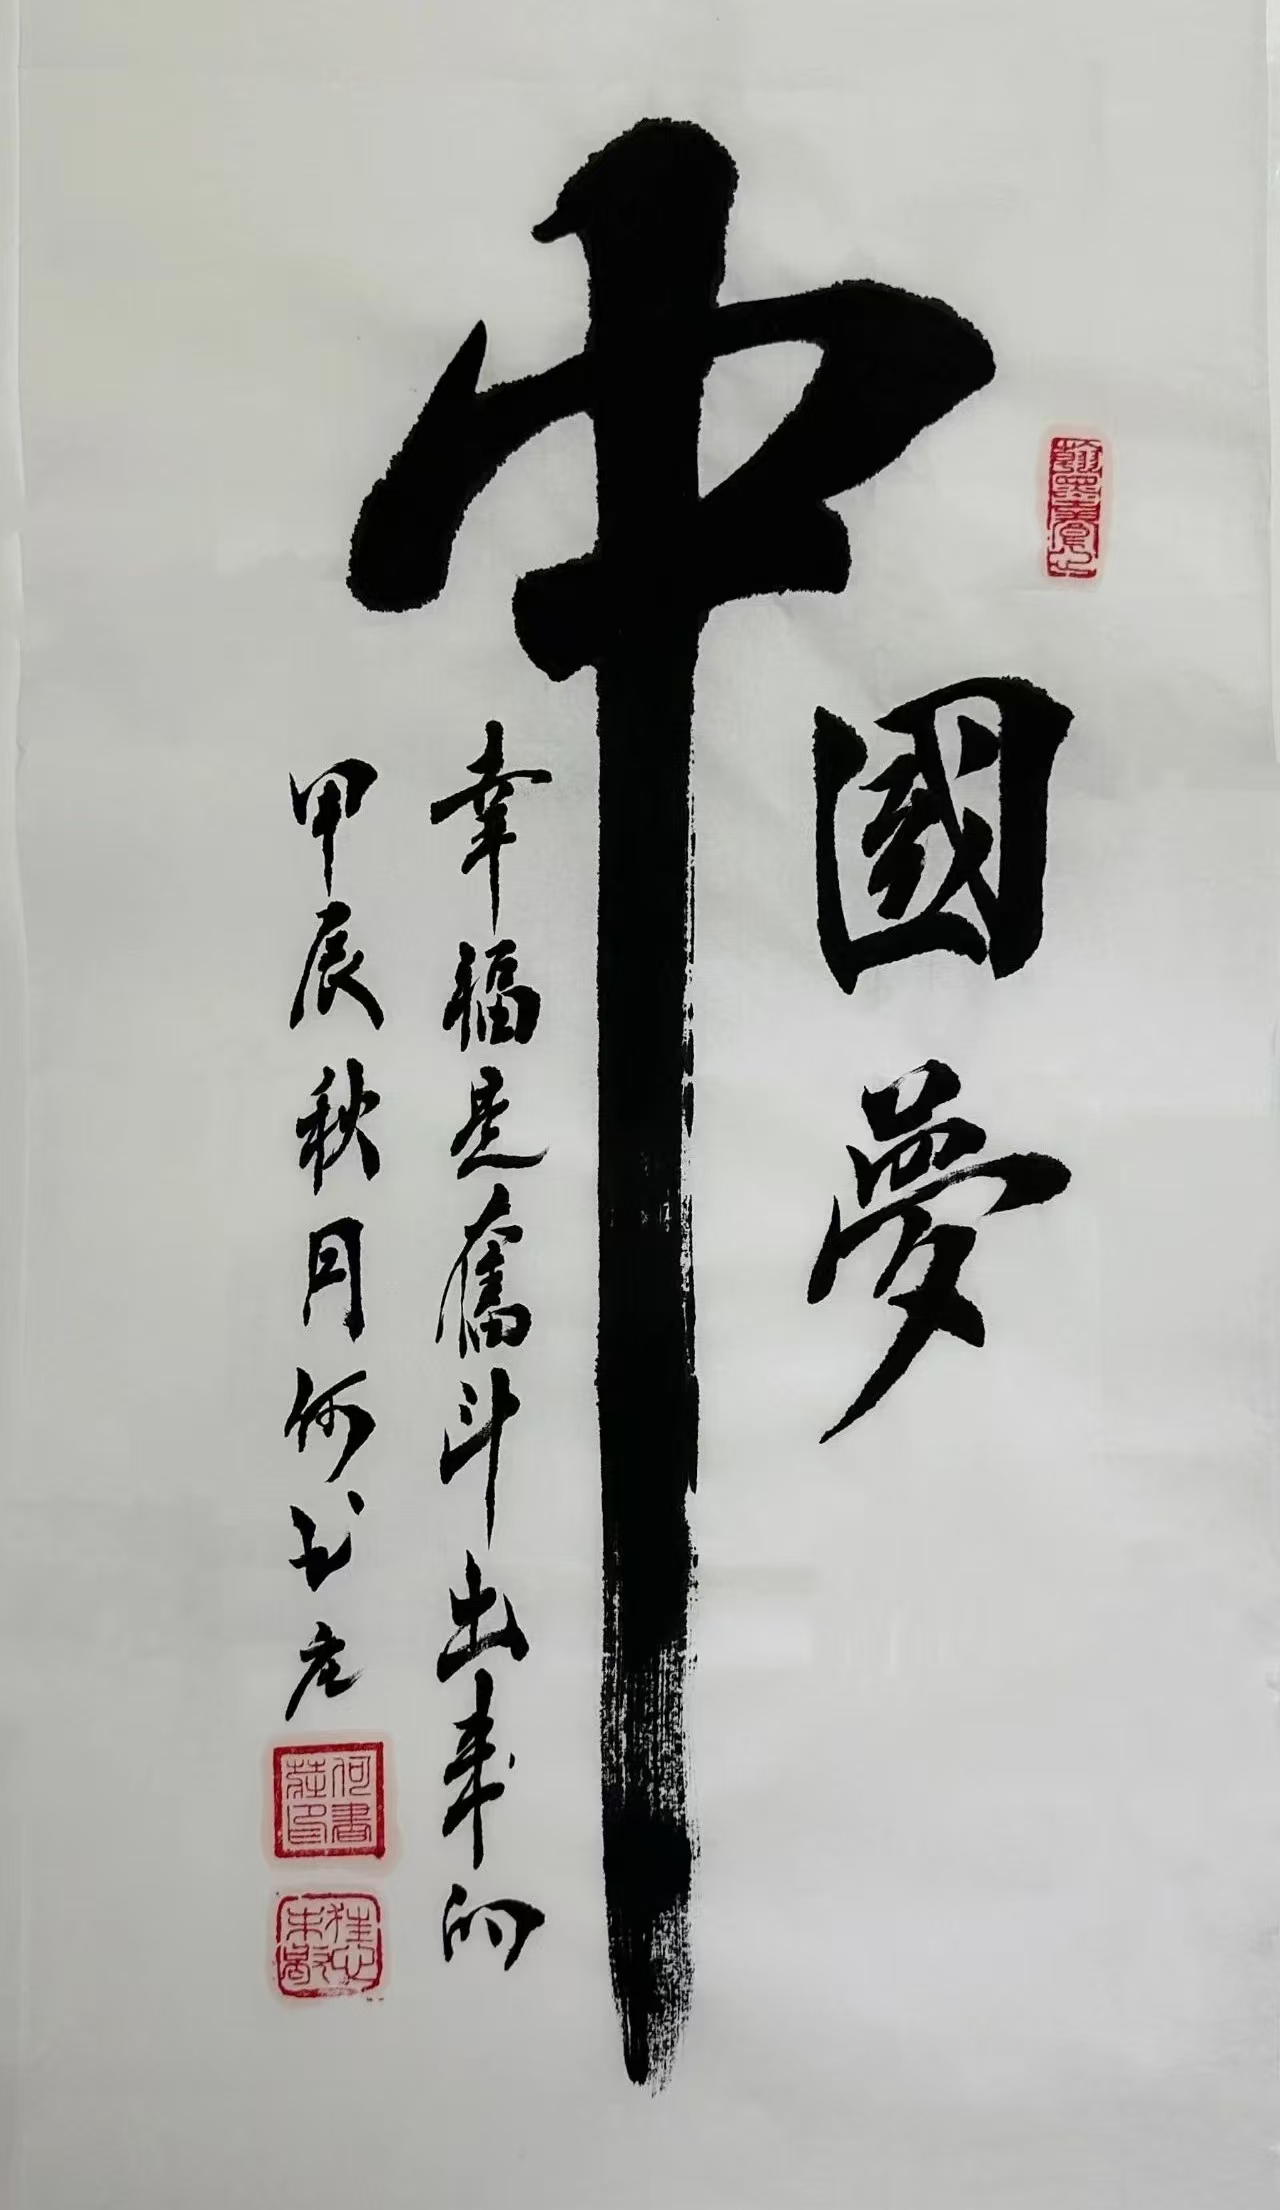 中
國夢
幸福是奮斗出来的
甲辰秋月何书庄
翰墨
何書莊印